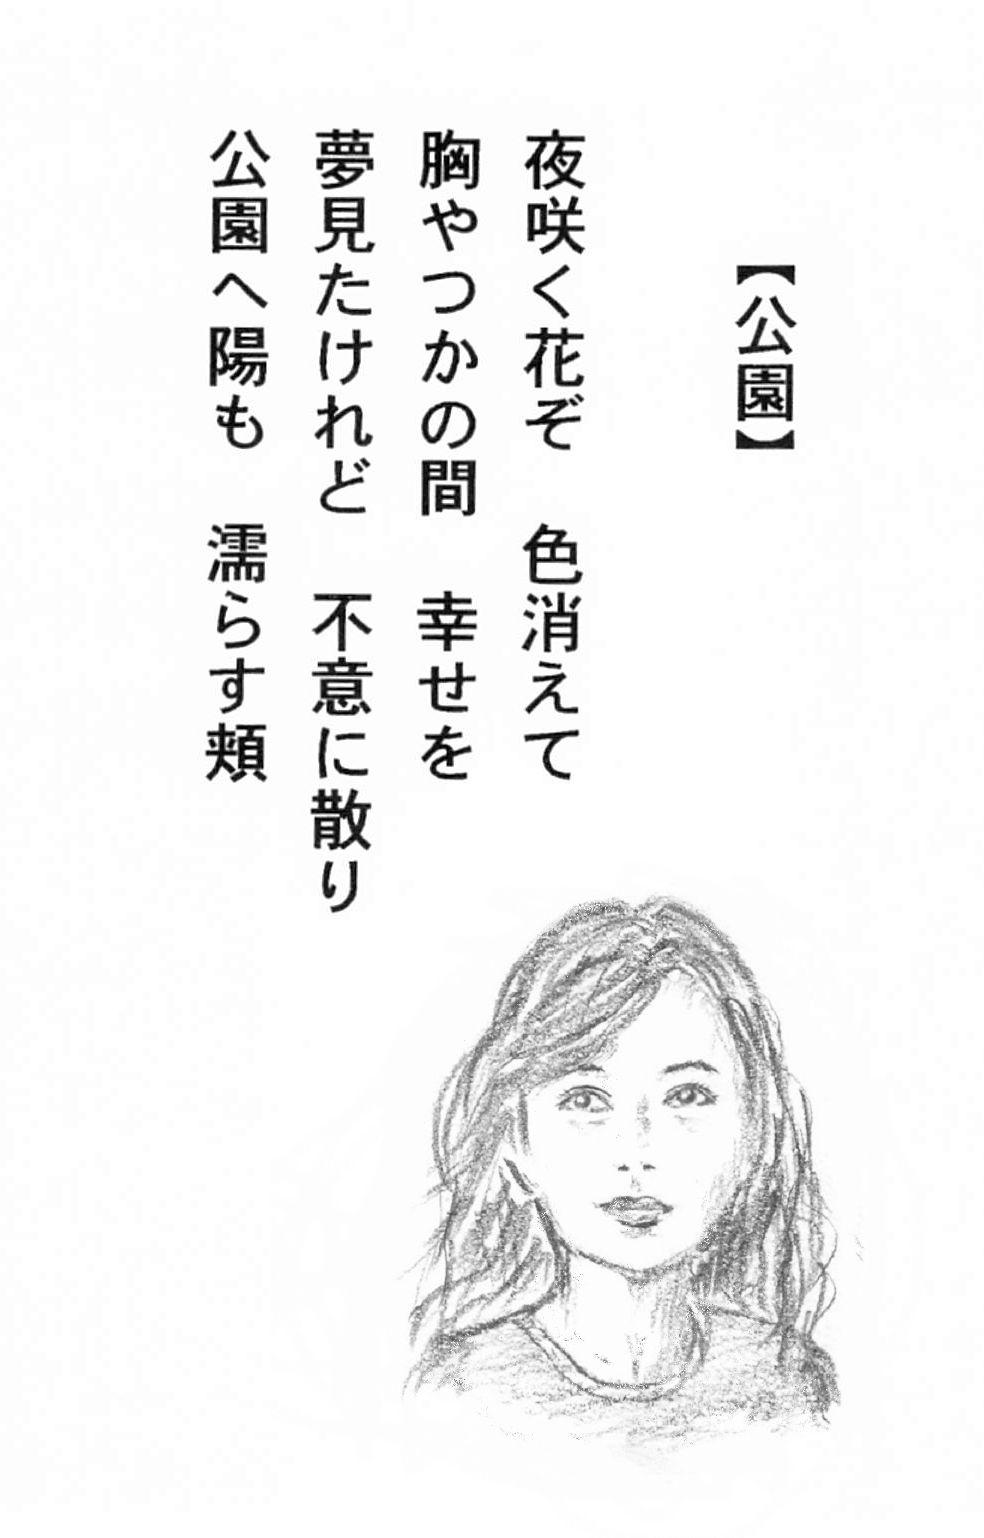 【公園】
夜咲く花ぞ　色消えて
胸やつかの間　幸せを
夢見たけれど　不意に散り
公園へ陽も　濡らす頬